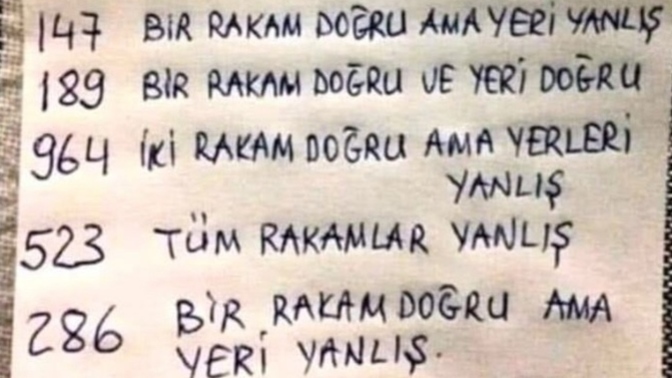 147 BİR RAKAM DOĞRU AMA YERİ YANLIŞ
189 BİR RAKAM DOĞRU VE YERİ DOĞRU
964 İKİ RAKAM DOĞRU AMA YERLERİ
YANLIŞ
523 TÜM RAKAMLAR YANLIŞ
286 BİR RAKAM DOĞRU AMA
YERİ YANLIŞ.